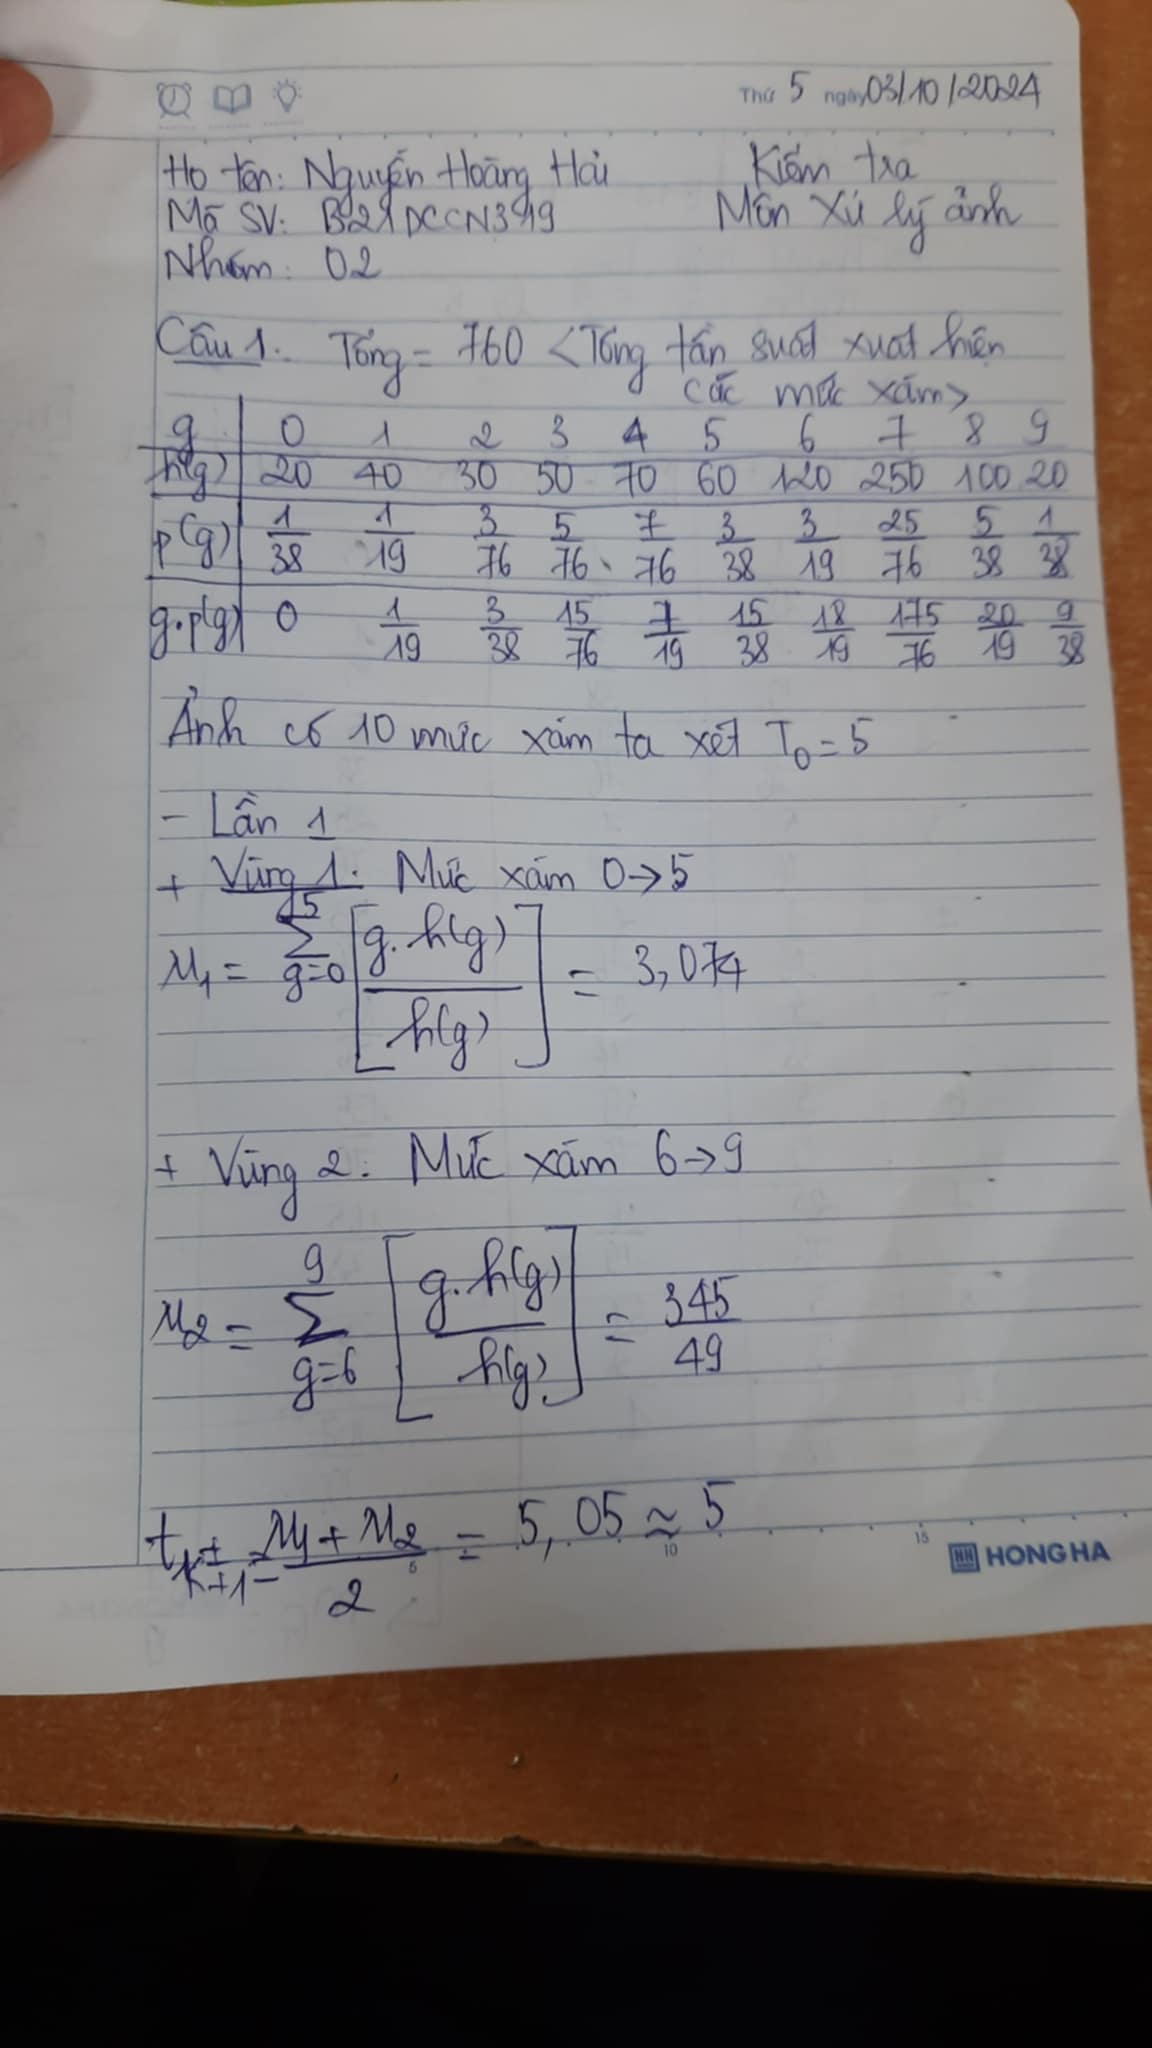 Thứ 5 ngày 03/10/2024
Họ tên: Nguyễn Hoàng Hải Kiểm tra
Mã SV: B21DCCN319 Môn Xử lý ảnh
Nhóm: 02
Câu 1. Tổng = 760 <Tổng tần suất xuất hiện
các mức xám>
g 0 1 2 3 4 5 6 7 8 9
h(g) 20 40 30 50 70 60 120 250 100 20
p(g) 1/38 1/19 3/76 5/76 7/76 3/38 3/19 25/76 5/38 1/38
g.p(g) 0 1/19 3/38 15/76 7/19 15/38 18/19 175/76 20/19 9/38
Ảnh có 10 mức xám ta xét T0 = 5
- Lần 1
+ Vùng 1. Mức xám 0→5
M1 = Σ g=0 5 [g.h(g) / h(g)] = 3,074
+ Vùng 2: Mức xám 6→9
M2 = Σ g=6 9 [g.h(g) / h(g)] = 345/49
tk+1 = M1 + M2 / 2 = 5,05 ≈ 5
5 10 15
HONG HA